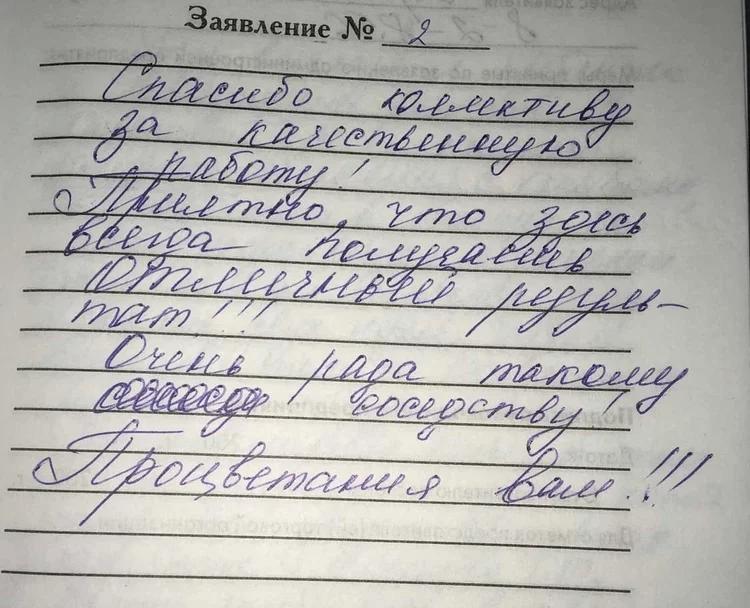 Заявление № 2
Спасибо коллективу
за качественную
работу!
Приятно, что здесь
всегда получаешь
отличный резуль-
тат!!!
Очень рада такому
соседству!
Процветания вам!!!